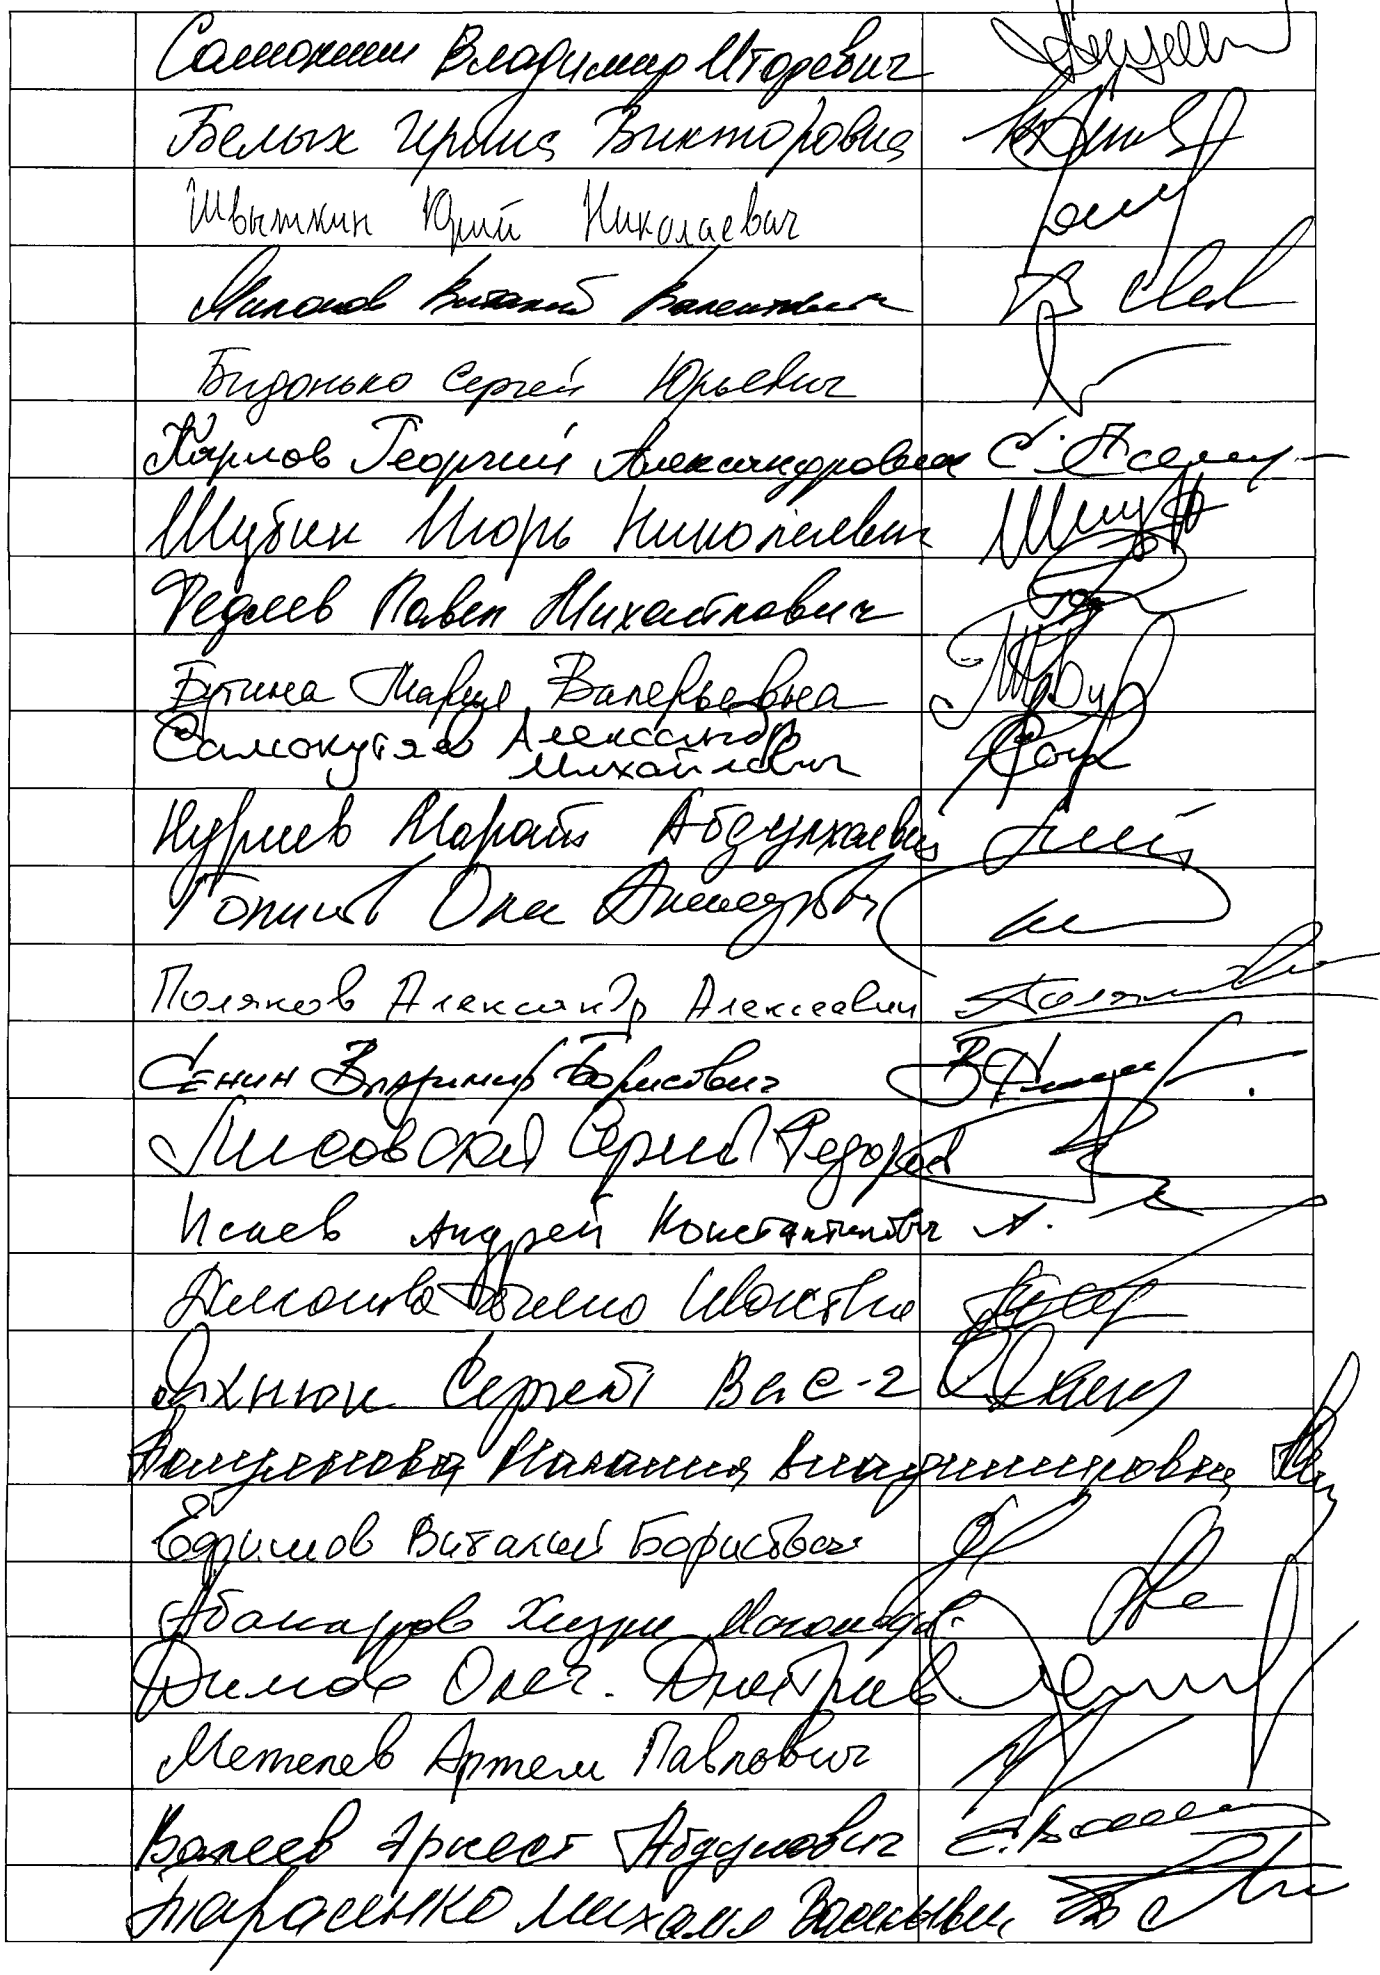 Самокиш Владимир Игоревич
Белых Ирина Викторовна
Швыткин Юрий Николаевич
Милонов Виталий Валентинович
Бидонько Сергей Юрьевич
Карлов Георгий Александрович
Шубин Игорь Николаевич
Федяев Павел Михайлович
Бутина Мария Валерьевна
Самокутяев Александр
Михайлович
Нуриев Марат Абдулхаевич
Гольшв
Поляков Александр Алексеевич
Сенин Владимир Борисович
Лисовский Сергей Федоров
Исаев Андрей Константинович А.
Яхнюк Сергей Вас-ч
Полуянова Наталия Владимировна
Ефимов Виталий Борисович
Абакаров Хизри Магомедов.
Димов Олег. Дмитриев.
Метелев Артем Павлович
Валеев Эрнест Абдулович
Тарасенко Михаил Васильевич